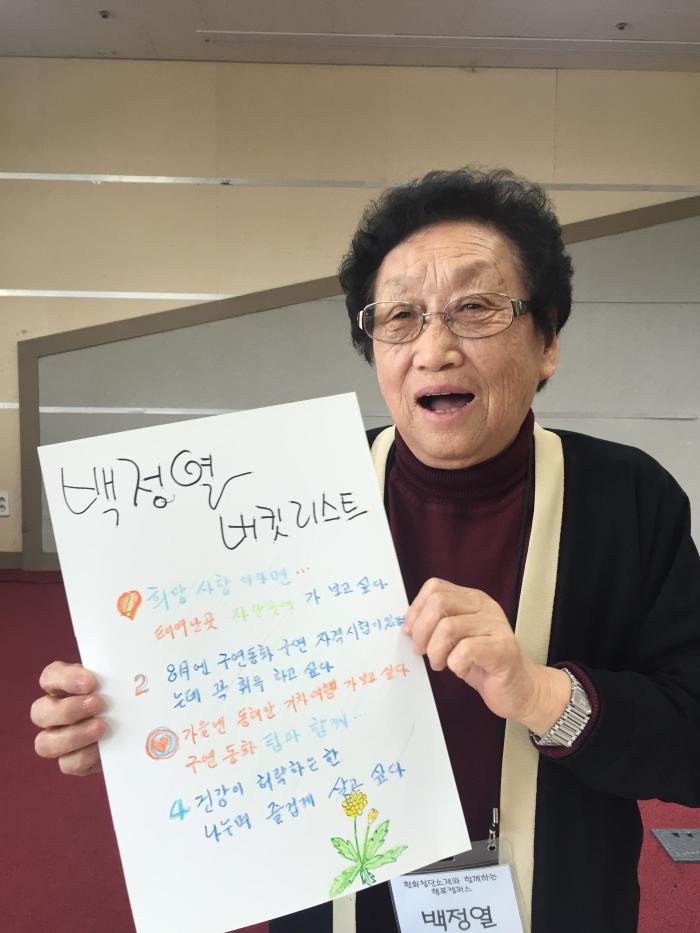 백정열
버킷 리스트
희망 사항 이라면...
태어난곳 가 보고 싶다
2 8월엔 구연동화 구연 자격시험이 있
는데 꼭 취득 하고 싶다
가을엔 동해안 기차여행 가보고 싶다
구연 동화 팀과 함께...
4 건강이 허락하는 한
나누며 즐겁게 살고 싶다
한화첨단소재와 함께하는
행복캠퍼스
백정열